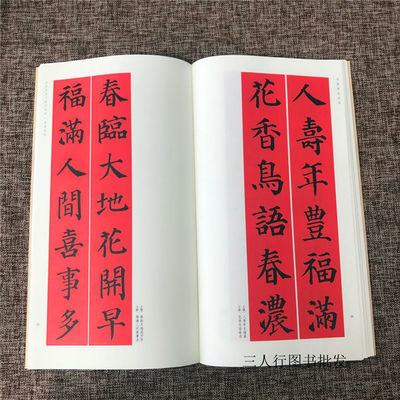 人壽年豊福滿
花香鳥語春濃
春臨大地花開早
福滿人間喜事多
三人行图书批发